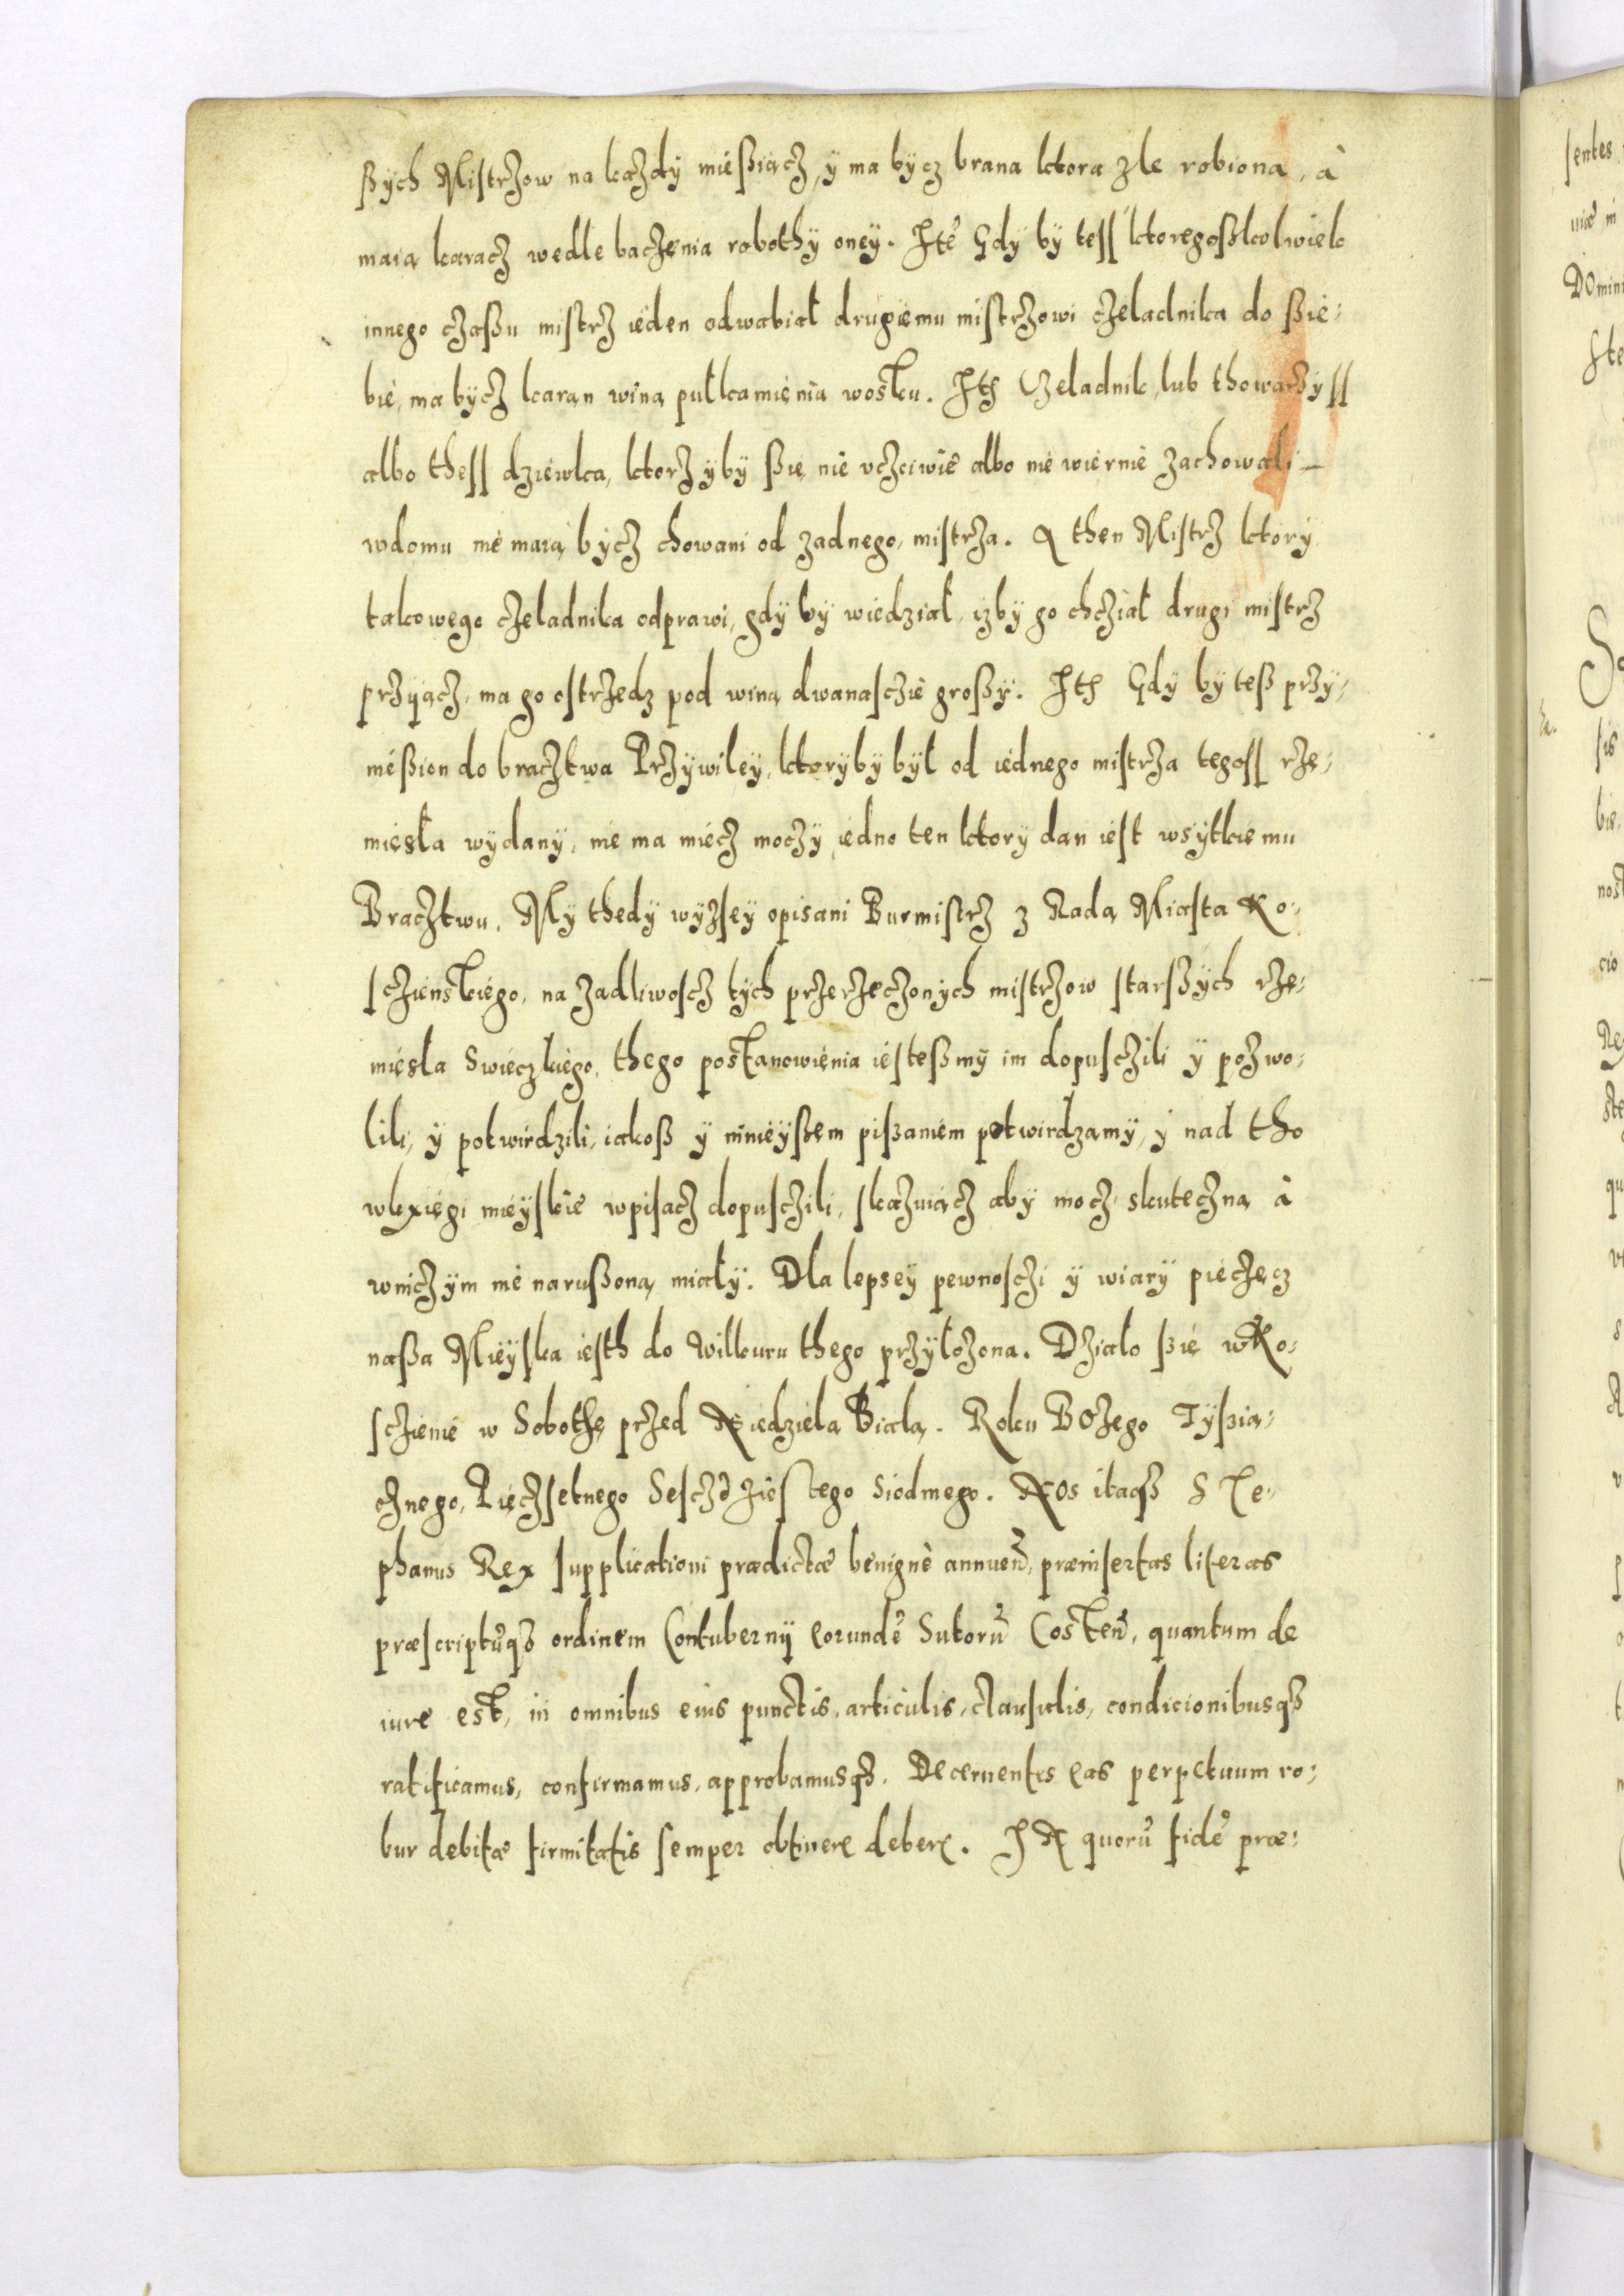 ßÿch Mistrzow na kazdÿ mießiącz, ÿ ma bÿcz brana ktora zle robiona, à
maią karacz wedle baczenia robothÿ oneÿ. Itẽ Gdÿ bÿ tess ktoregoßkolwiek
innego czaßu mistrz ieden odwabiał drugiemu mistrzowi czeladnika do ßie-
bie, ma bÿcz karan winą pułkamienia wosku. Itẽ Czeladnik, lub thowarzÿss
albo thess dziewka, ktorzÿbÿ ßię nie vczciwie albo nie wiernie zachowali
wdomu nie maią bÿcz chowani od zadnego mistrza. A then Mistrz ktorÿ
takowego czeladnika odprawi, gdÿ bÿ wiedział, izbÿ go chcział drugi mistrz
przÿiącz, ma go ostrzedz pod winą dwanasczie großÿ. Itẽ Gdÿ bÿ teß przÿ-
nießion do bracztwa Przÿwileÿ, ktorÿbÿ bÿł od iednego mistrza tegoss rze-
miesła wÿdanÿ, nie ma miecz moczÿ, iedno ten ktorÿ dan iest wsÿtkiemu
Bracztwu. Mÿ thedÿ wÿzseÿ opisani Burmistrz z Radą Miasta Ko-
sczienskiego, na ządliwoscz tÿch przerzeczonÿch mistrzow starßÿch rze-
miesla Swieczkiego, thego postanowienia iesteßmÿ im dopusczili ÿ pozwo-
lili, ÿ potwirdzili, iakoß ÿ ninieÿßem pißaniem potwirdzamÿ, ÿ nad tho
wkxięgi mieÿskie wpisacz dopusczili, skazuiącz abÿ mocz skuteczną à
wniczÿm nie narußoną miałÿ. Dla lepseÿ pewnosczi ÿ wiarÿ pieczęcz
naßa Mieÿska iesth do Wilkuru thego przÿłożona. Działo ßie wKo-
sczienie w Sobothę przed Niedzielą Białą. Roku Bożego Tÿßią-
cznego, Pięczsetnego Sesczdziestego Siodmego. Nos itaqз Ste-
phanus Rex supplicationi prædictæ benignè annuen̄, præinsertas literas
præscriptũqз ordinem Contubernij eorundẽ Sutorũ Costen̄, quantum de
iure est, in omnibus eius punctis, articulis, clausulis, condicionibusqз
ratificamus, confirmamus, approbamusqз. Decernentes eas perpetuum ro-
bur debitæ firmitatis semper obtinere debere. IN quorũ fidẽ præ-